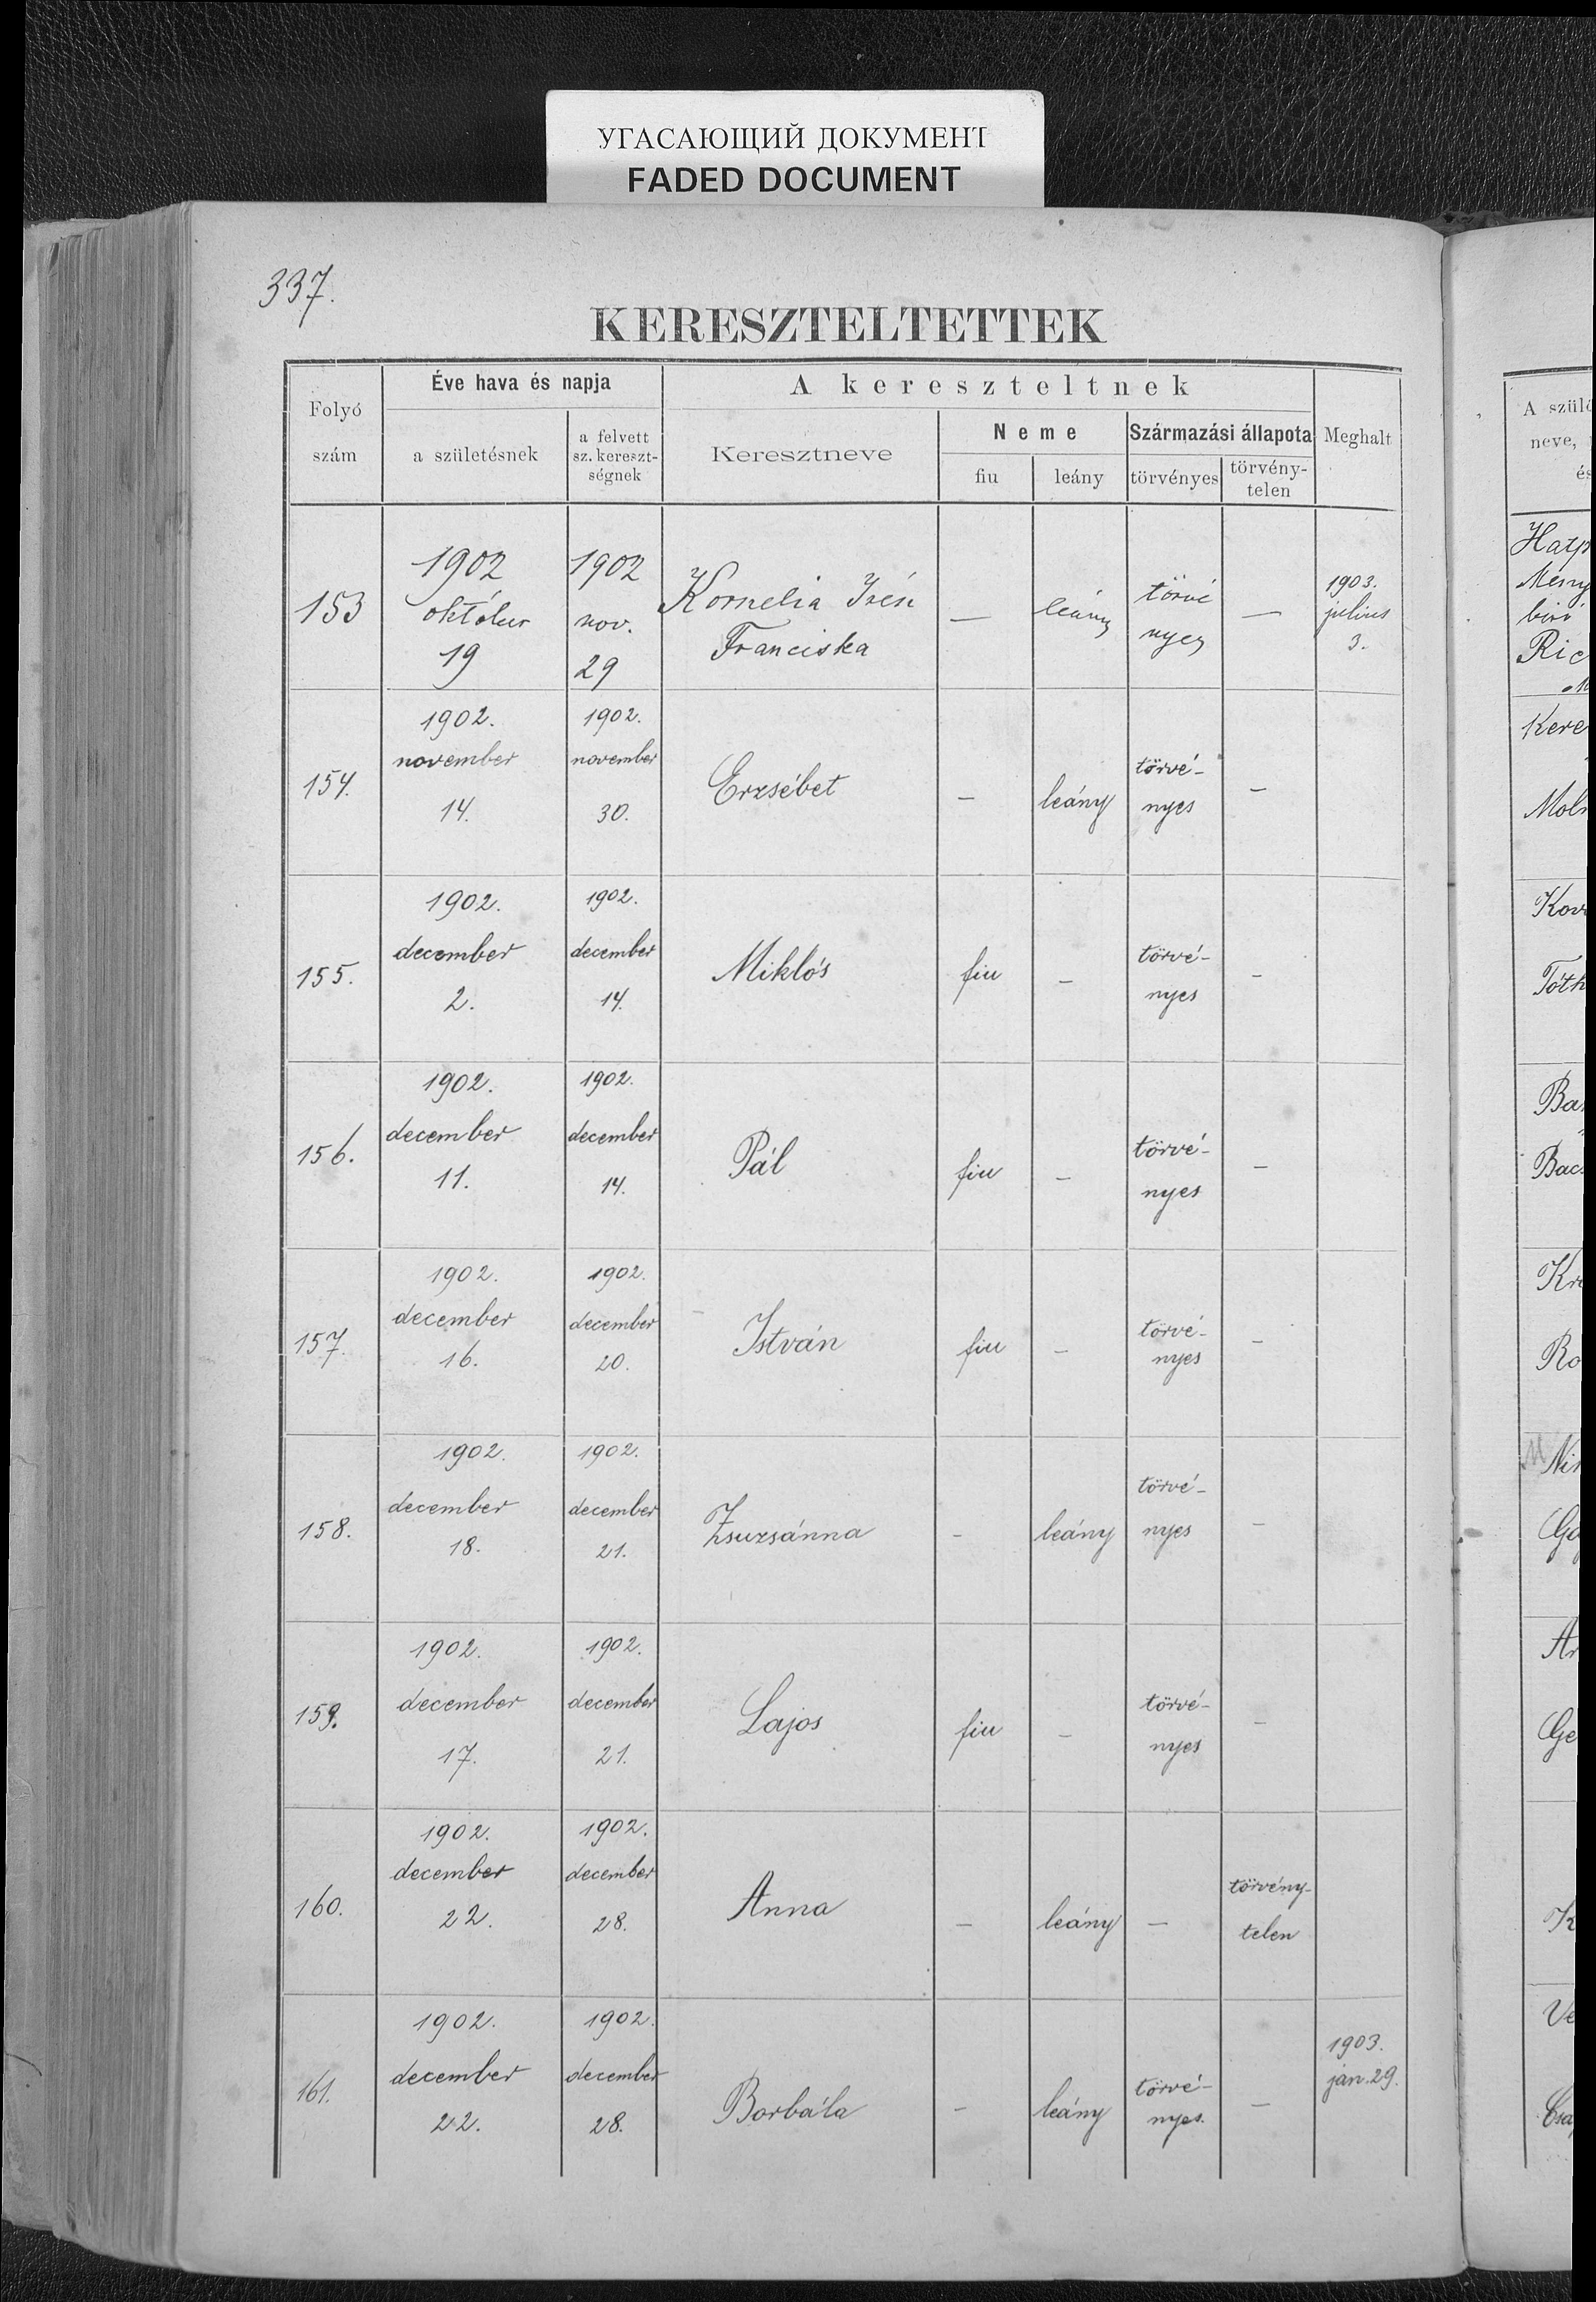 УГАСАЮЩИЙ ДОКУМЕНТ
FADED DOCUMENT
337.
KERESZTELTETTEK
Folyó szám
Éve hava és napja
a születésnek
a felvett sz. kereszt-ségnek
A kereszteltnek
Keresztneve
Neme
fiu
leány
Származási állapota
törvényes
törvény-telen
Meghalt
153 1902 október 19 1902 nov. 29 Kornelia Irén Franciska — leány törvé nyes — 1903. julius 3.
154. 1902. november 14. 1902. november 30. Erzsébet — leány törvé-nyes —
155. 1902. december 2. 1902. december 14. Miklós fiu — törvé-nyes —
156. 1902. december 11. 1902. december 14. Pál fiu — törvé-nyes —
157. 1902. december 16. 1902. december 20. István fiu — törvé-nyes —
158. 1902. december 18. 1902. december 21. Zsuzsánna — leány törvé-nyes —
159. 1902. december 17. 1902. december 21. Lajos fiu — törvé-nyes —
160. 1902. december 22. 1902. december 28. Anna — leány — törvény-telen
161. 1902. december 22. 1902. december 28. Borbála — leány törvé-nyes. — 1903. jan. 29.
A szülő
neve,
és
Kere
Moln
Tóth